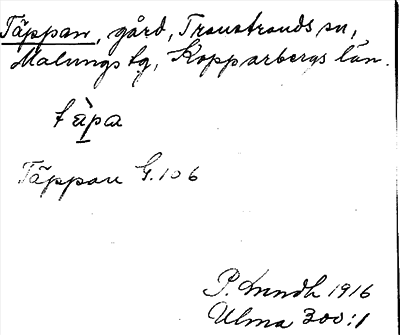 Täppan, gård, Transtrands sn,
Malungs tg, Kopparbergs län.
tä̀pa
Täppan G. 106
P. Anndh 1916
Ulma 300:1